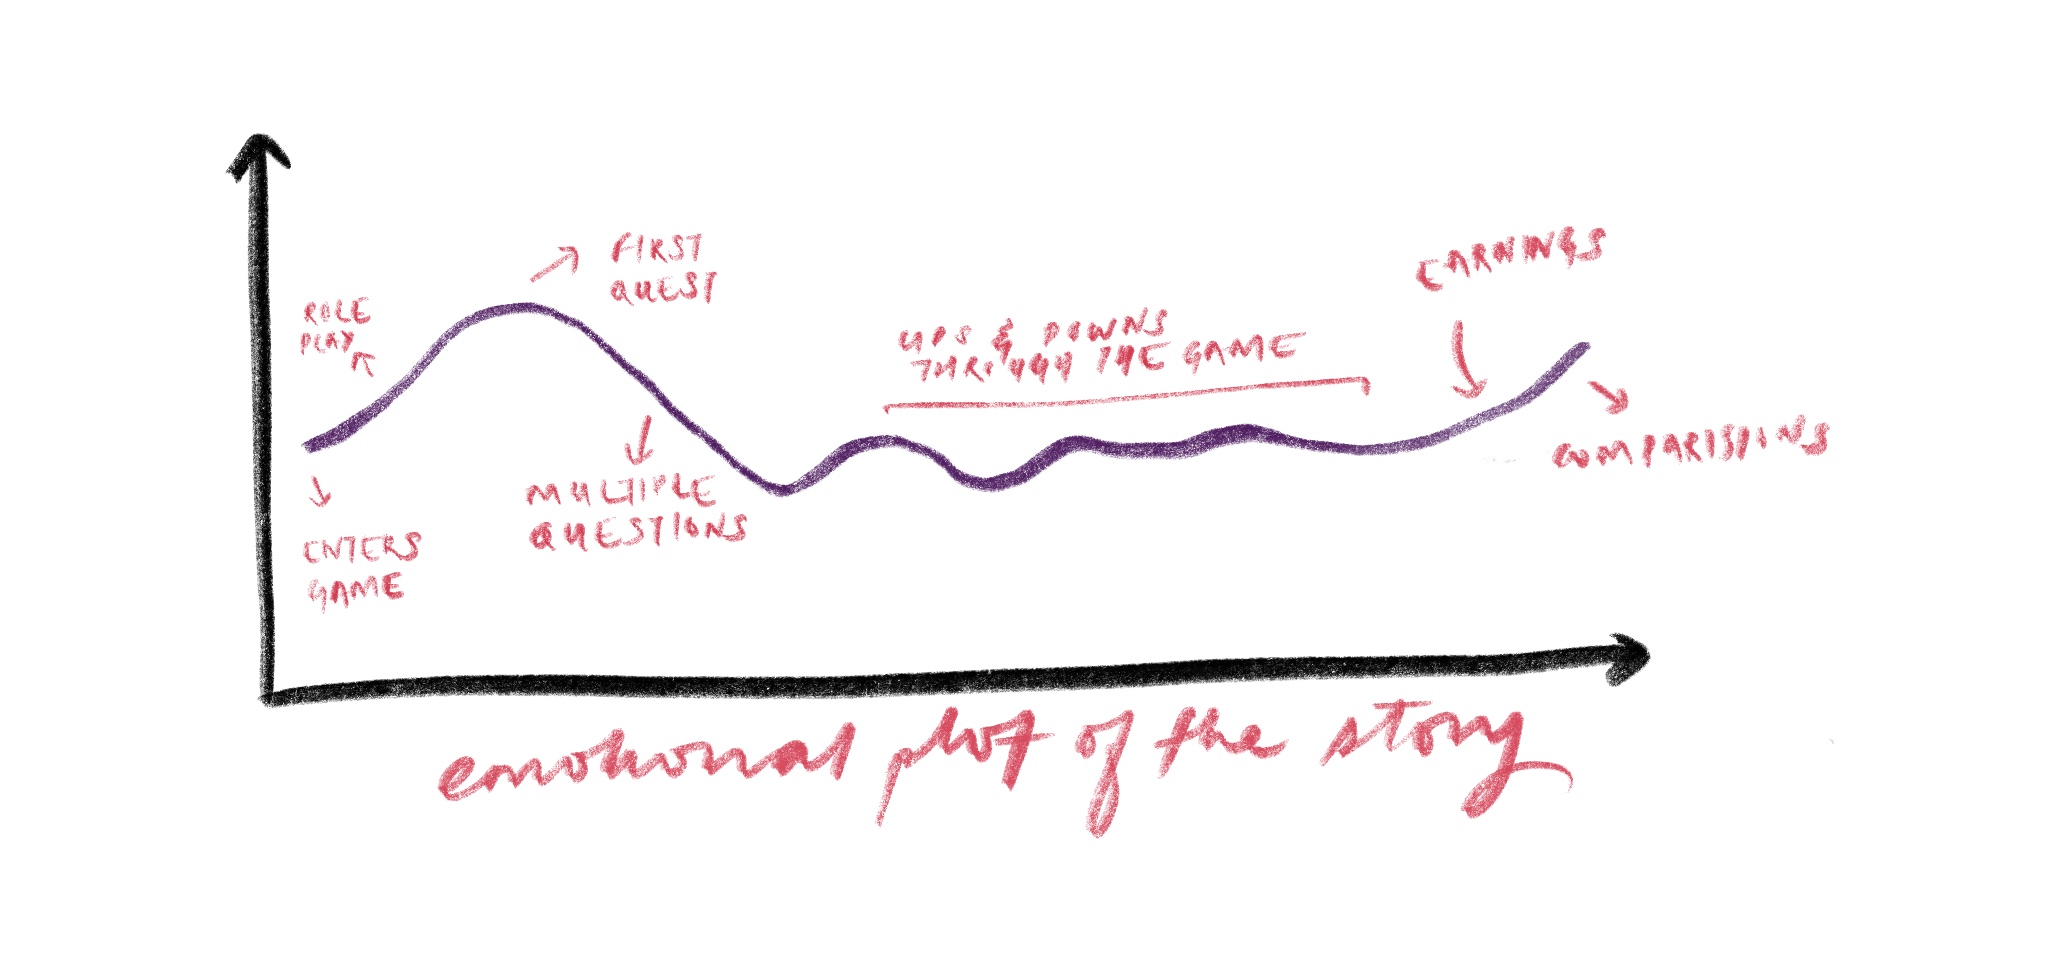 ROLE
PLAY
ENTERS
GAME
FIRST
QUEST
MULTIPLE
QUESTIONS
UPS & DOWNS
THROUGH THE GAME
EARNINGS
COMPARISIONS
emotional plot of the story